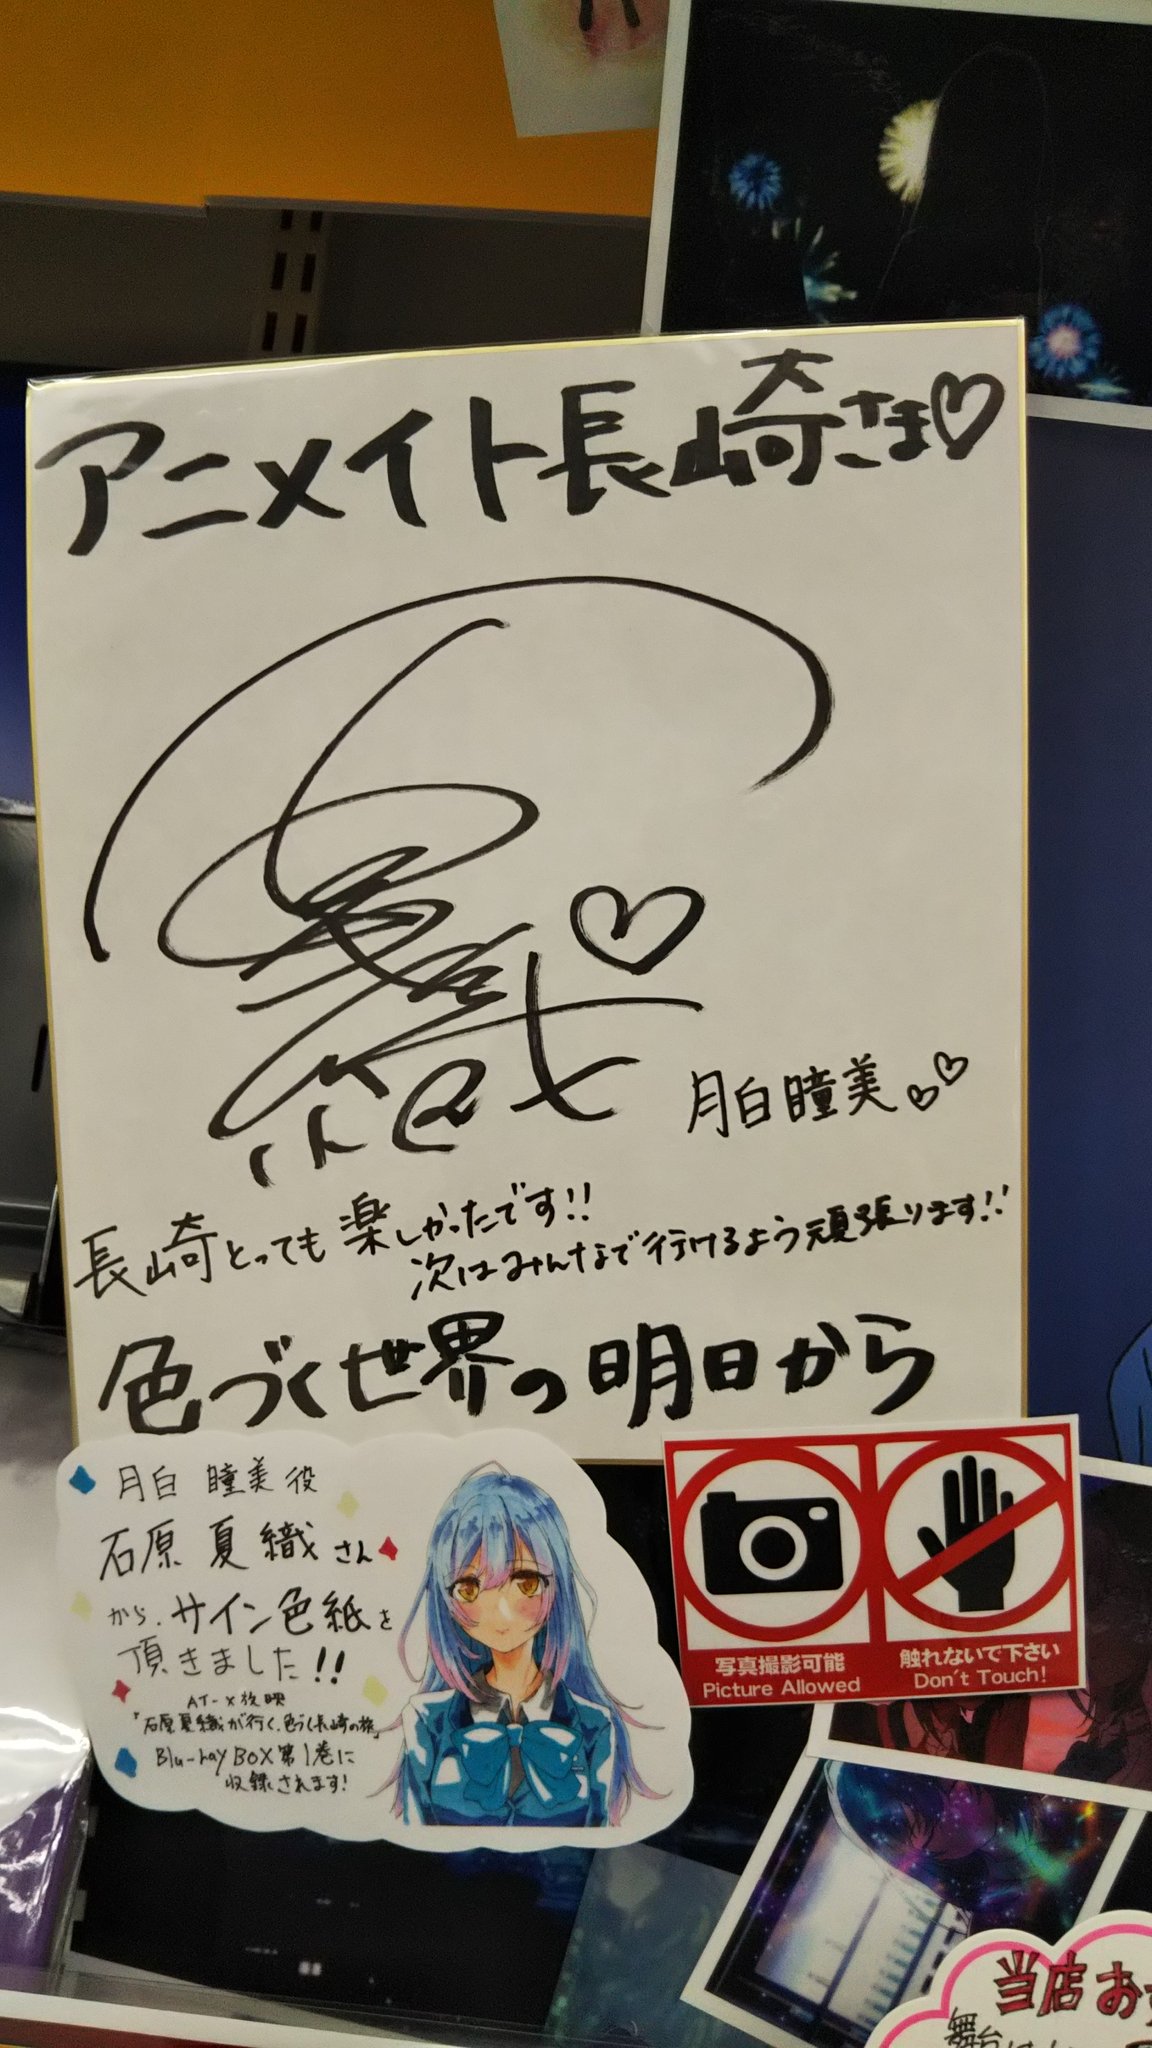 アニメイト長崎さま♡
夏織♡
月白瞳美♡♡
長崎とっても楽しかったです!!
次はみんなで行けるよう頑張ります!!
色づく世界の明日から
月白 瞳美役
石原 夏織さん
から、サイン色紙を
頂きました!!
AT-X放映
「石原夏織が行く、色づく長崎の旅」
Blu-ray BOX第1巻に
収録されます!
写真撮影可能
Picture Allowed
触れないで下さい
Don't Touch!
当店お
舞台